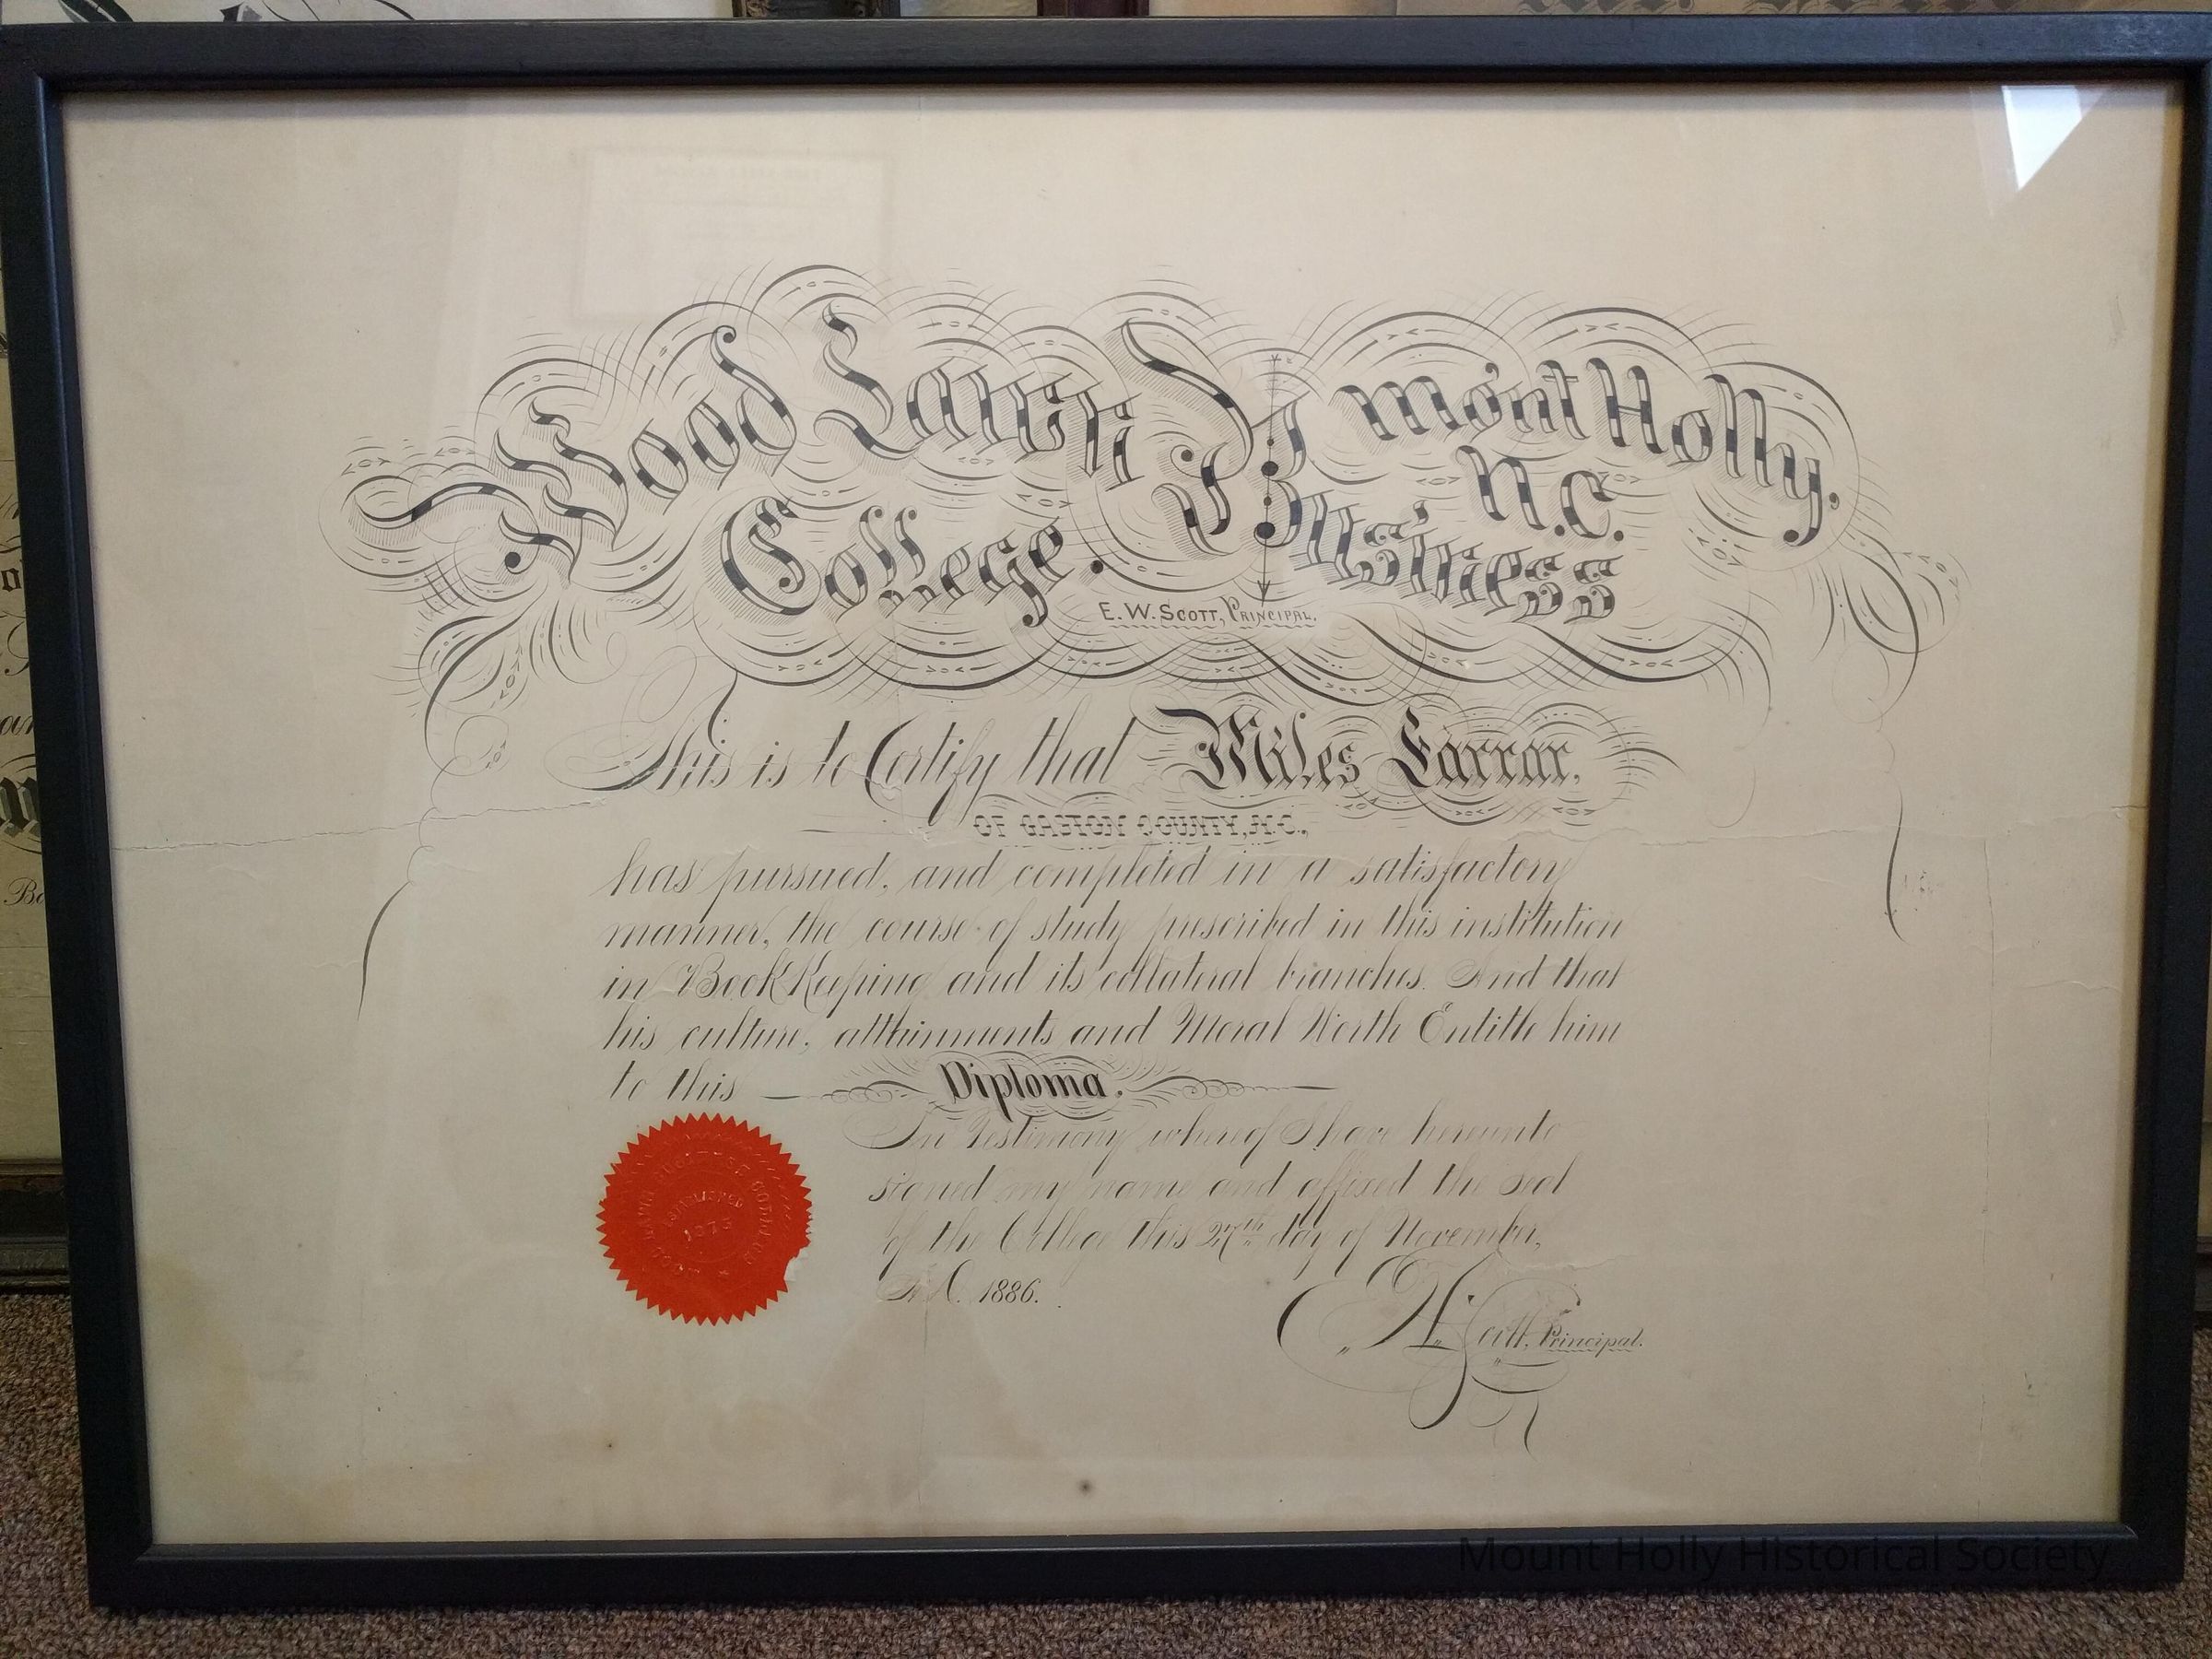 Wood Lawn Business College.
Mont Holly, N.C.
E. W. Scott, Principal.
This is to Certify that Miles Farrar,
OF GASTON COUNTY, N.C.,
has pursued, and completed in a satisfactory
manner, the course of study prescribed in this institution
in Book Keeping and its collateral branches. And that
his culture, attainments and Moral Worth Entitle him
to this Diploma.
In Testimony whereof I have hereunto
signed my name and affixed the seal
of the College this 27th day of November,
A.D. 1886.
E W Scott, Principal.
ESTABLISHED
Mount Holly Historical Society